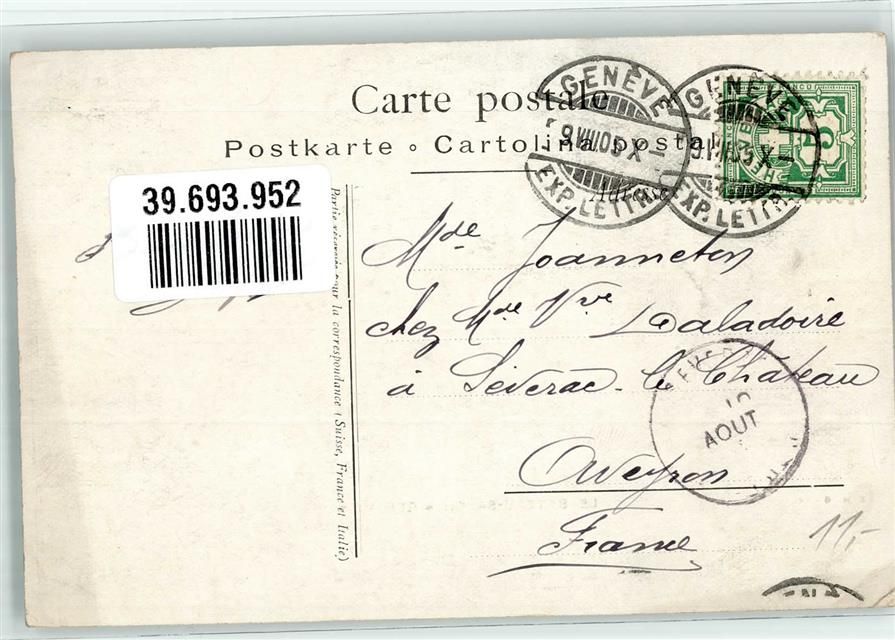 Carte postale
Postkarte ◦ Cartolina postale
GENÈVE
9.VIII.05 X–
EXP. LETTR.
GENÈVE
9.VIII.05 X–
EXP. LETTR.
5
39.693.952
Partie réservée pour la correspondance (Suisse, France et Italie)
Mde Joanneton
chez Mde Vve Daladoire
à Séverac-le Château
Aveyron
France
10
AOUT
11,-